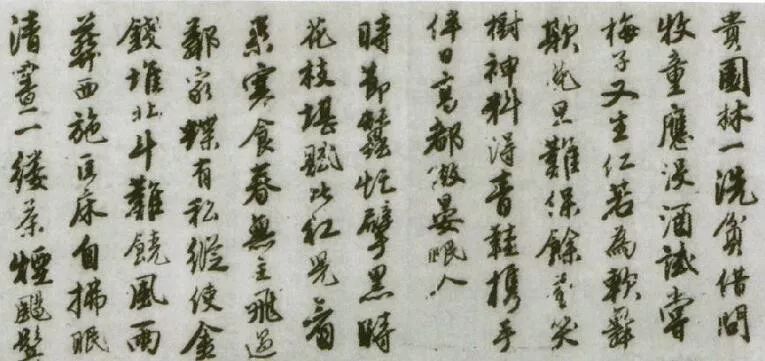 貴園林一洗貧借問
牧童應没酒試嘗
梅子又生仁若為軟舞
欺花旦難保餘香笑
樹神料得青鞋携手
伴日高都做晏眠人
時節蠶忙擘黑時
花枝堪賦比紅兒看
來寒食春無主飛過
鄰家蝶有私縱使金
錢堆北斗難饒風雨
葬西施匡床自拂眠
清晝一縷茶煙颺鬢